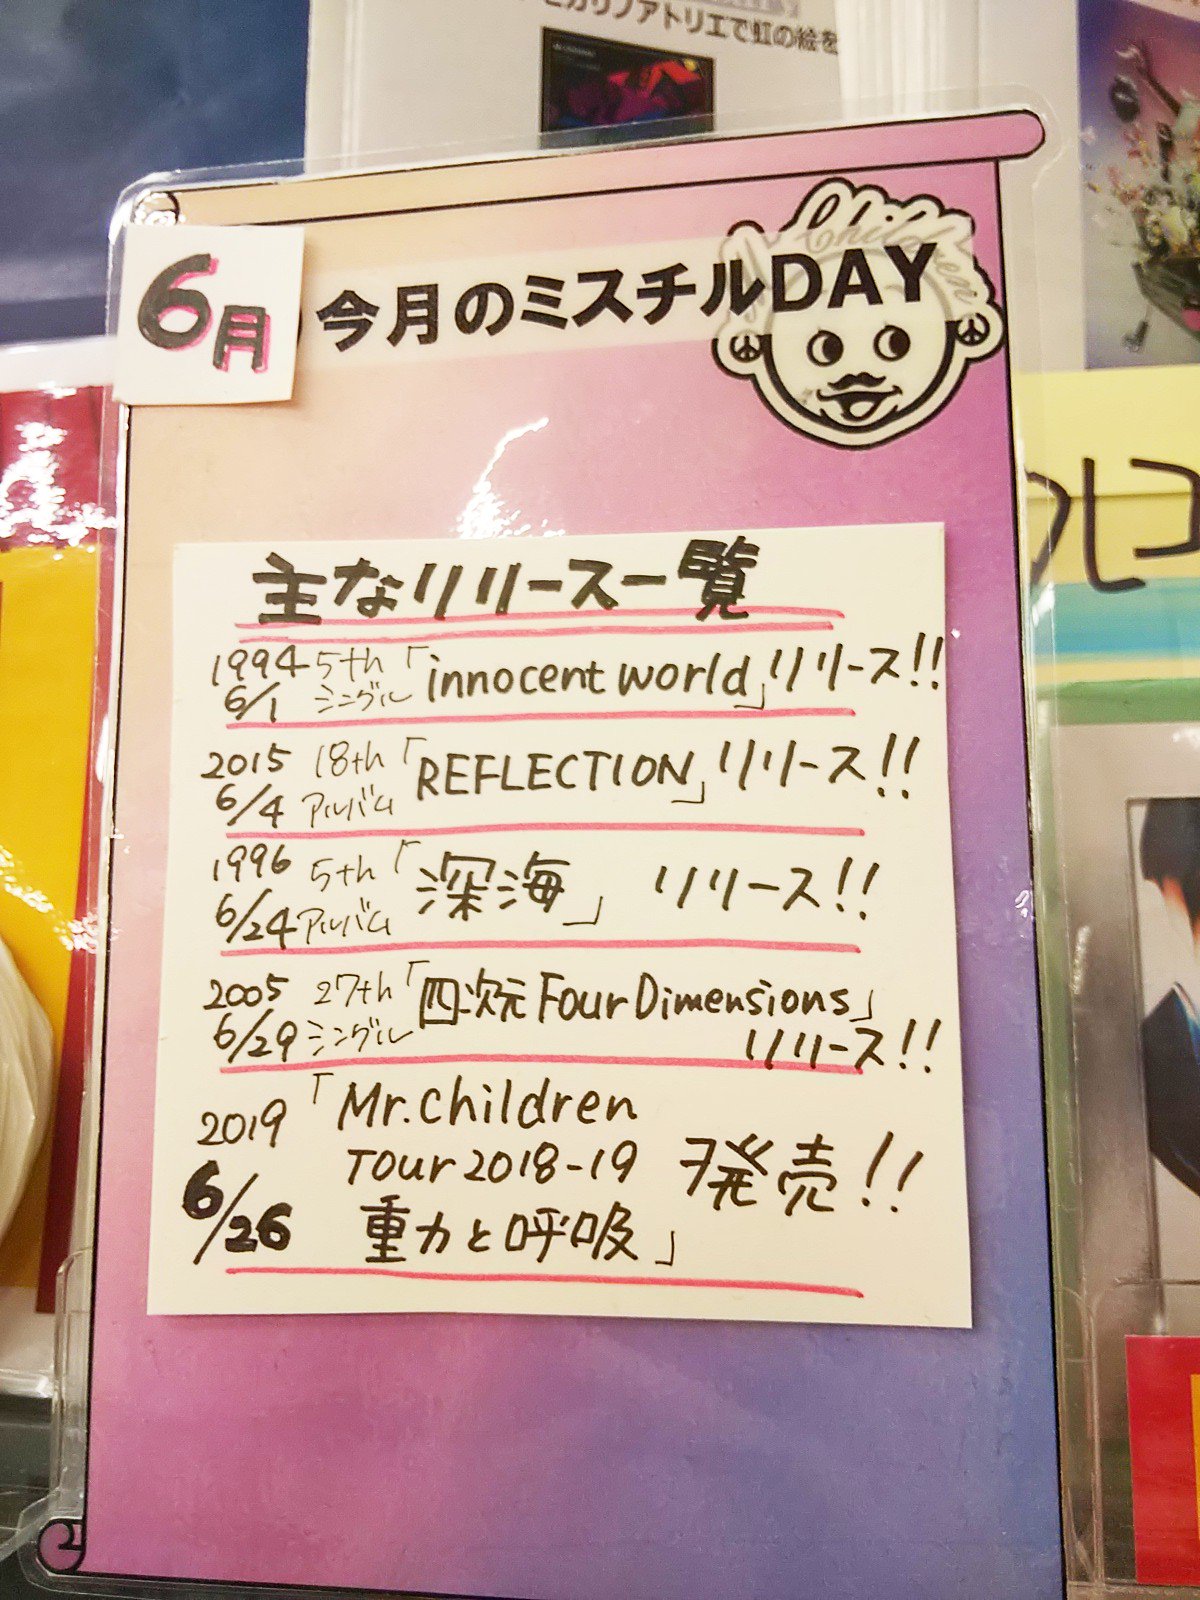 ヒカリノアトリエで虹の絵を
6月
今月のミスチルDAY
Children
主なリリース一覧
1994 5th「innocent world」リリース!!
6/1 シングル
2015 18th「REFLECTION」リリース!!
6/4 アルバム
1996 5th「深海」リリース!!
6/24 アルバム
2005 27th「四次元 Four Dimensions」
6/29 シングル リリース!!
2019「Mr.Children
Tour 2018-19 発売!!
6/26 重力と呼吸」